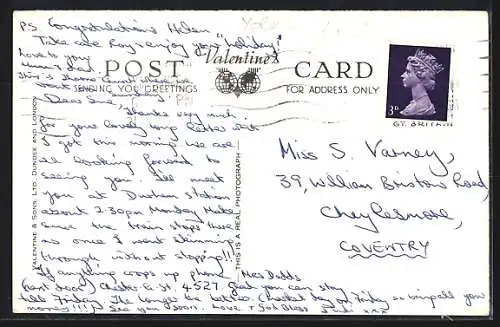 P.S. Congratulations Helen
Take care Roy + enjoy your "holiday"!
Love to you
Mum + Dad.
This is where we
went
POST
Valentine's
CARD
SENDING YOU GREETINGS
FOR ADDRESS ONLY
Dear Sue,
thanks very much
for your lovely long letter which
I got this morning we are
all looking forward to
seeing you I'll meet
you at Durham Station
about 2.30pm Monday Make
sure the train stops there
as once I went skimming
through without stopping!!
If anything crops up phone Mrs Dodds
(next door) Chester-le-St 4527. Glad you can stay
till Friday. The longer the better. (market day on Friday so bring all your
money!!!) See you soon. Love + God Bless
Juli xxx
VALENTINE & SONS, LTD. DUNDEE AND LONDON
THIS IS A REAL PHOTOGRAPH
3D
GT. BRITAIN
Miss S. Varney,
39, William Bristow Road,
Cheylesmore,
COVENTRY